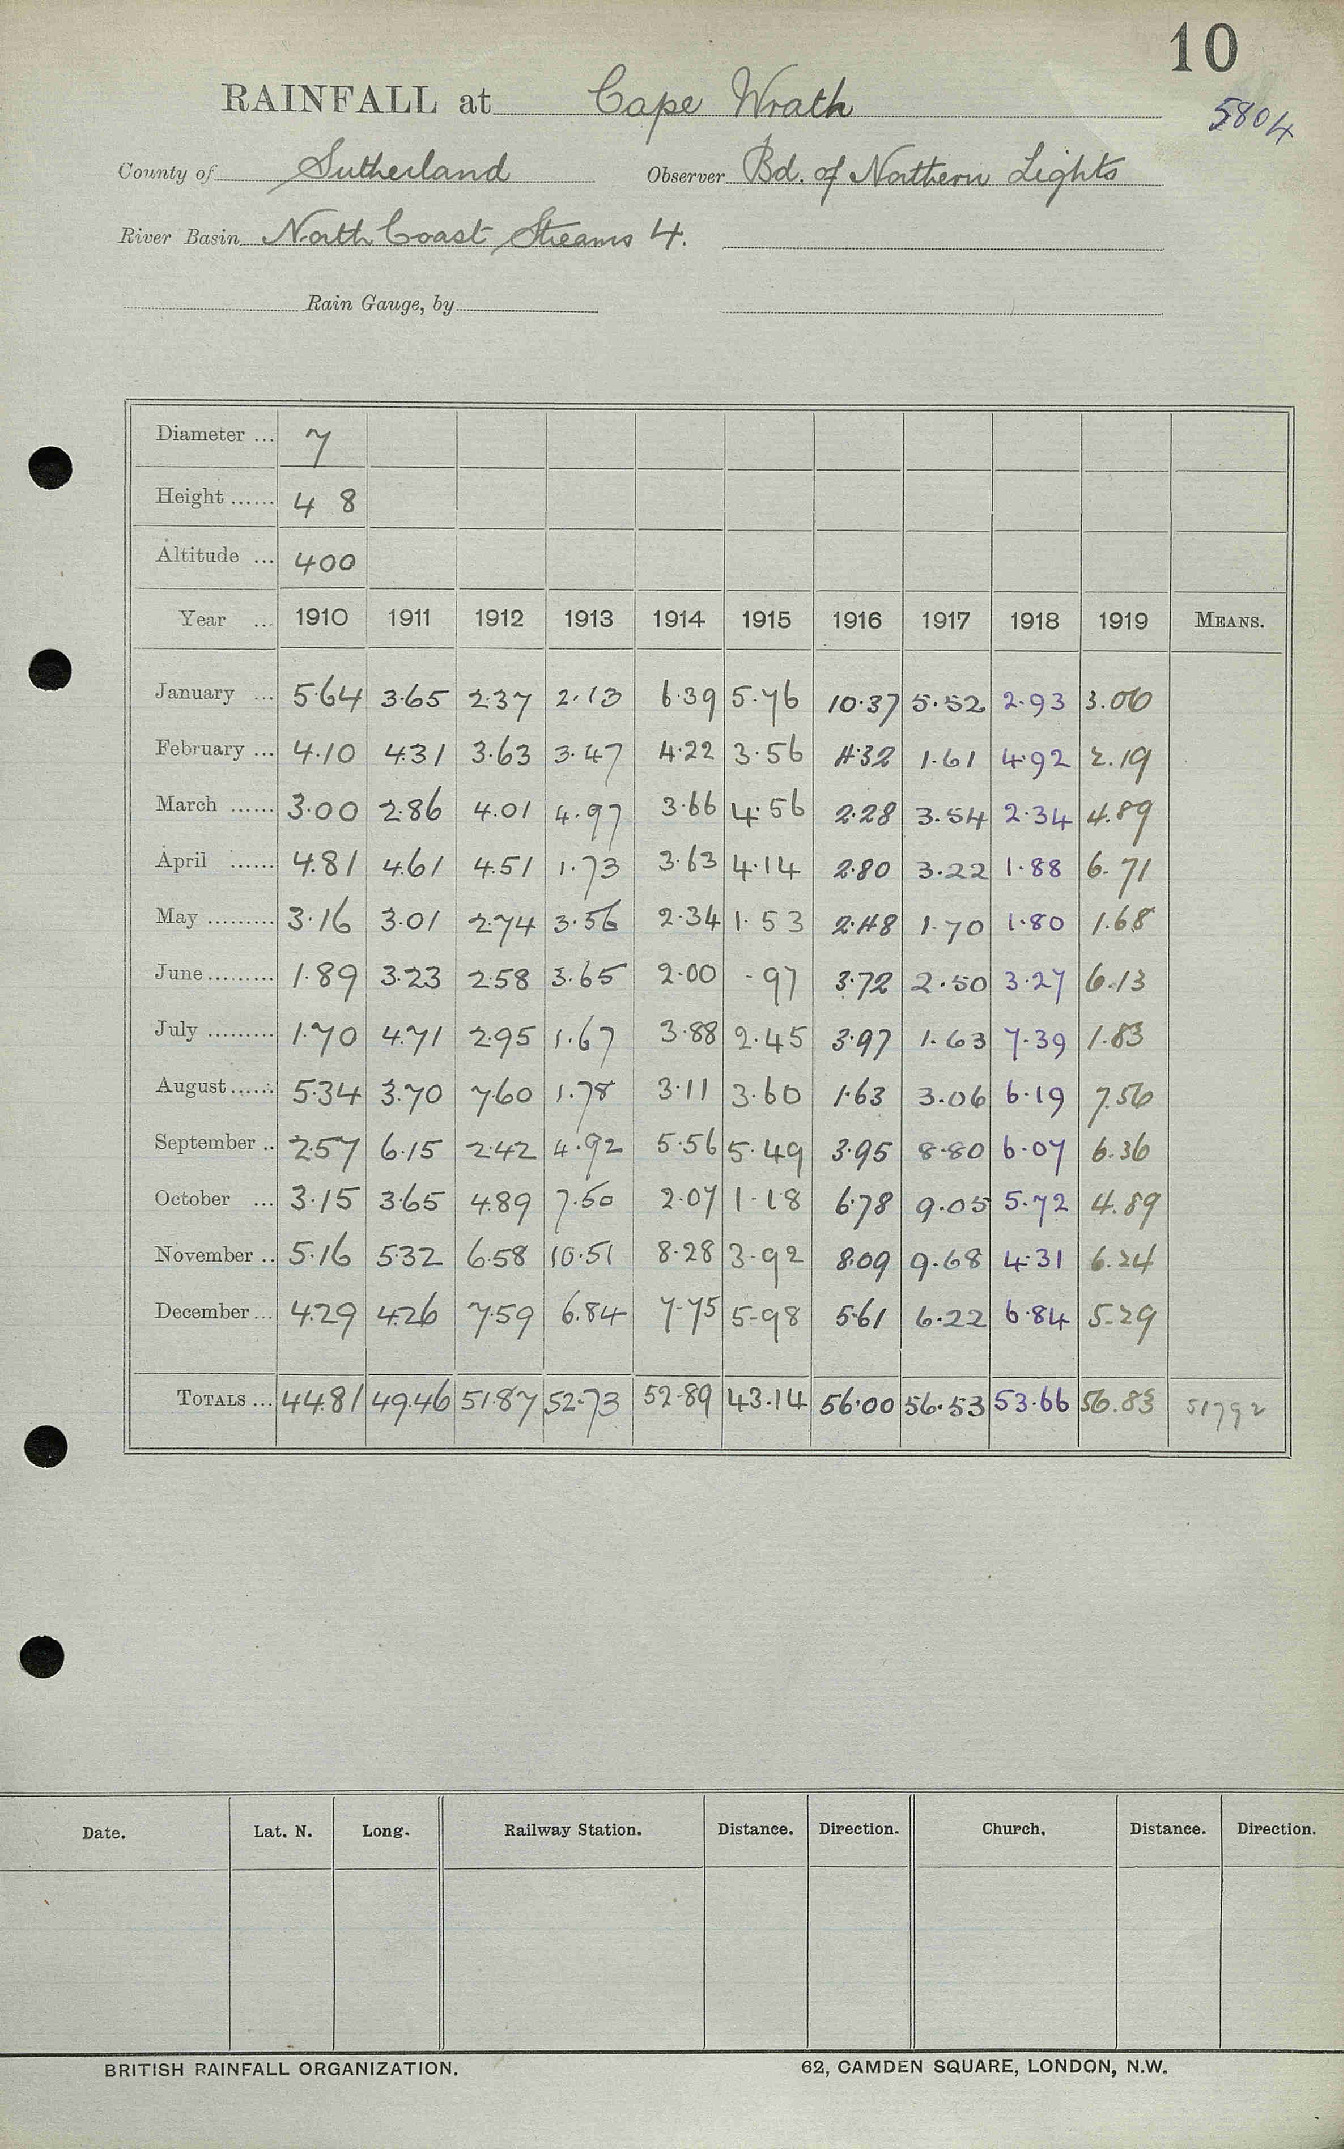 10
RAINFALL at Cape Wrath
5804
County of Sutherland Observer Bd. of Northern Lights
River Basin North Coast Streams 4.
Rain Gauge, by
Diameter ... 7
Height ...... 4 8
Altitude ... 400
Year ... 1910 1911 1912 1913 1914 1915 1916 1917 1918 1919 MEANS.
January ... 5.64 3.65 2.37 2.13 6.39 5.76 10.37 5.52 2.93 3.06
February ... 4.10 4.31 3.63 3.47 4.22 3.56 4.32 1.61 4.92 2.19
March ...... 3.00 2.86 4.01 4.97 3.66 4.56 2.28 3.54 2.34 4.89
April ...... 4.81 4.61 4.51 1.73 3.63 4.14 2.80 3.22 1.88 6.71
May ......... 3.16 3.01 2.74 3.56 2.34 1.53 2.48 1.70 1.80 1.68
June ......... 1.89 3.23 2.58 3.65 2.00 .97 3.72 2.50 3.27 6.13
July ......... 1.70 4.71 2.95 1.67 3.88 2.45 3.97 1.63 7.39 1.83
August ...... 5.34 3.70 7.60 1.78 3.11 3.60 1.63 3.06 6.19 7.56
September .. 2.57 6.15 2.42 4.92 5.56 5.49 3.95 8.80 6.07 6.36
October ... 3.15 3.65 4.89 7.50 2.07 1.18 6.78 9.05 5.72 4.89
November .. 5.16 5.32 6.58 10.51 8.28 3.92 8.09 9.68 4.31 6.24
December ... 4.29 4.26 7.59 6.84 7.75 5.98 5.61 6.22 6.84 5.29
TOTALS ... 44.81 49.46 51.87 52.73 52.89 43.14 56.00 56.53 53.66 56.83 51792
Date. Lat. N. Long. Railway Station. Distance. Direction. Church. Distance. Direction.
BRITISH RAINFALL ORGANIZATION. 62, CAMDEN SQUARE, LONDON, N.W.